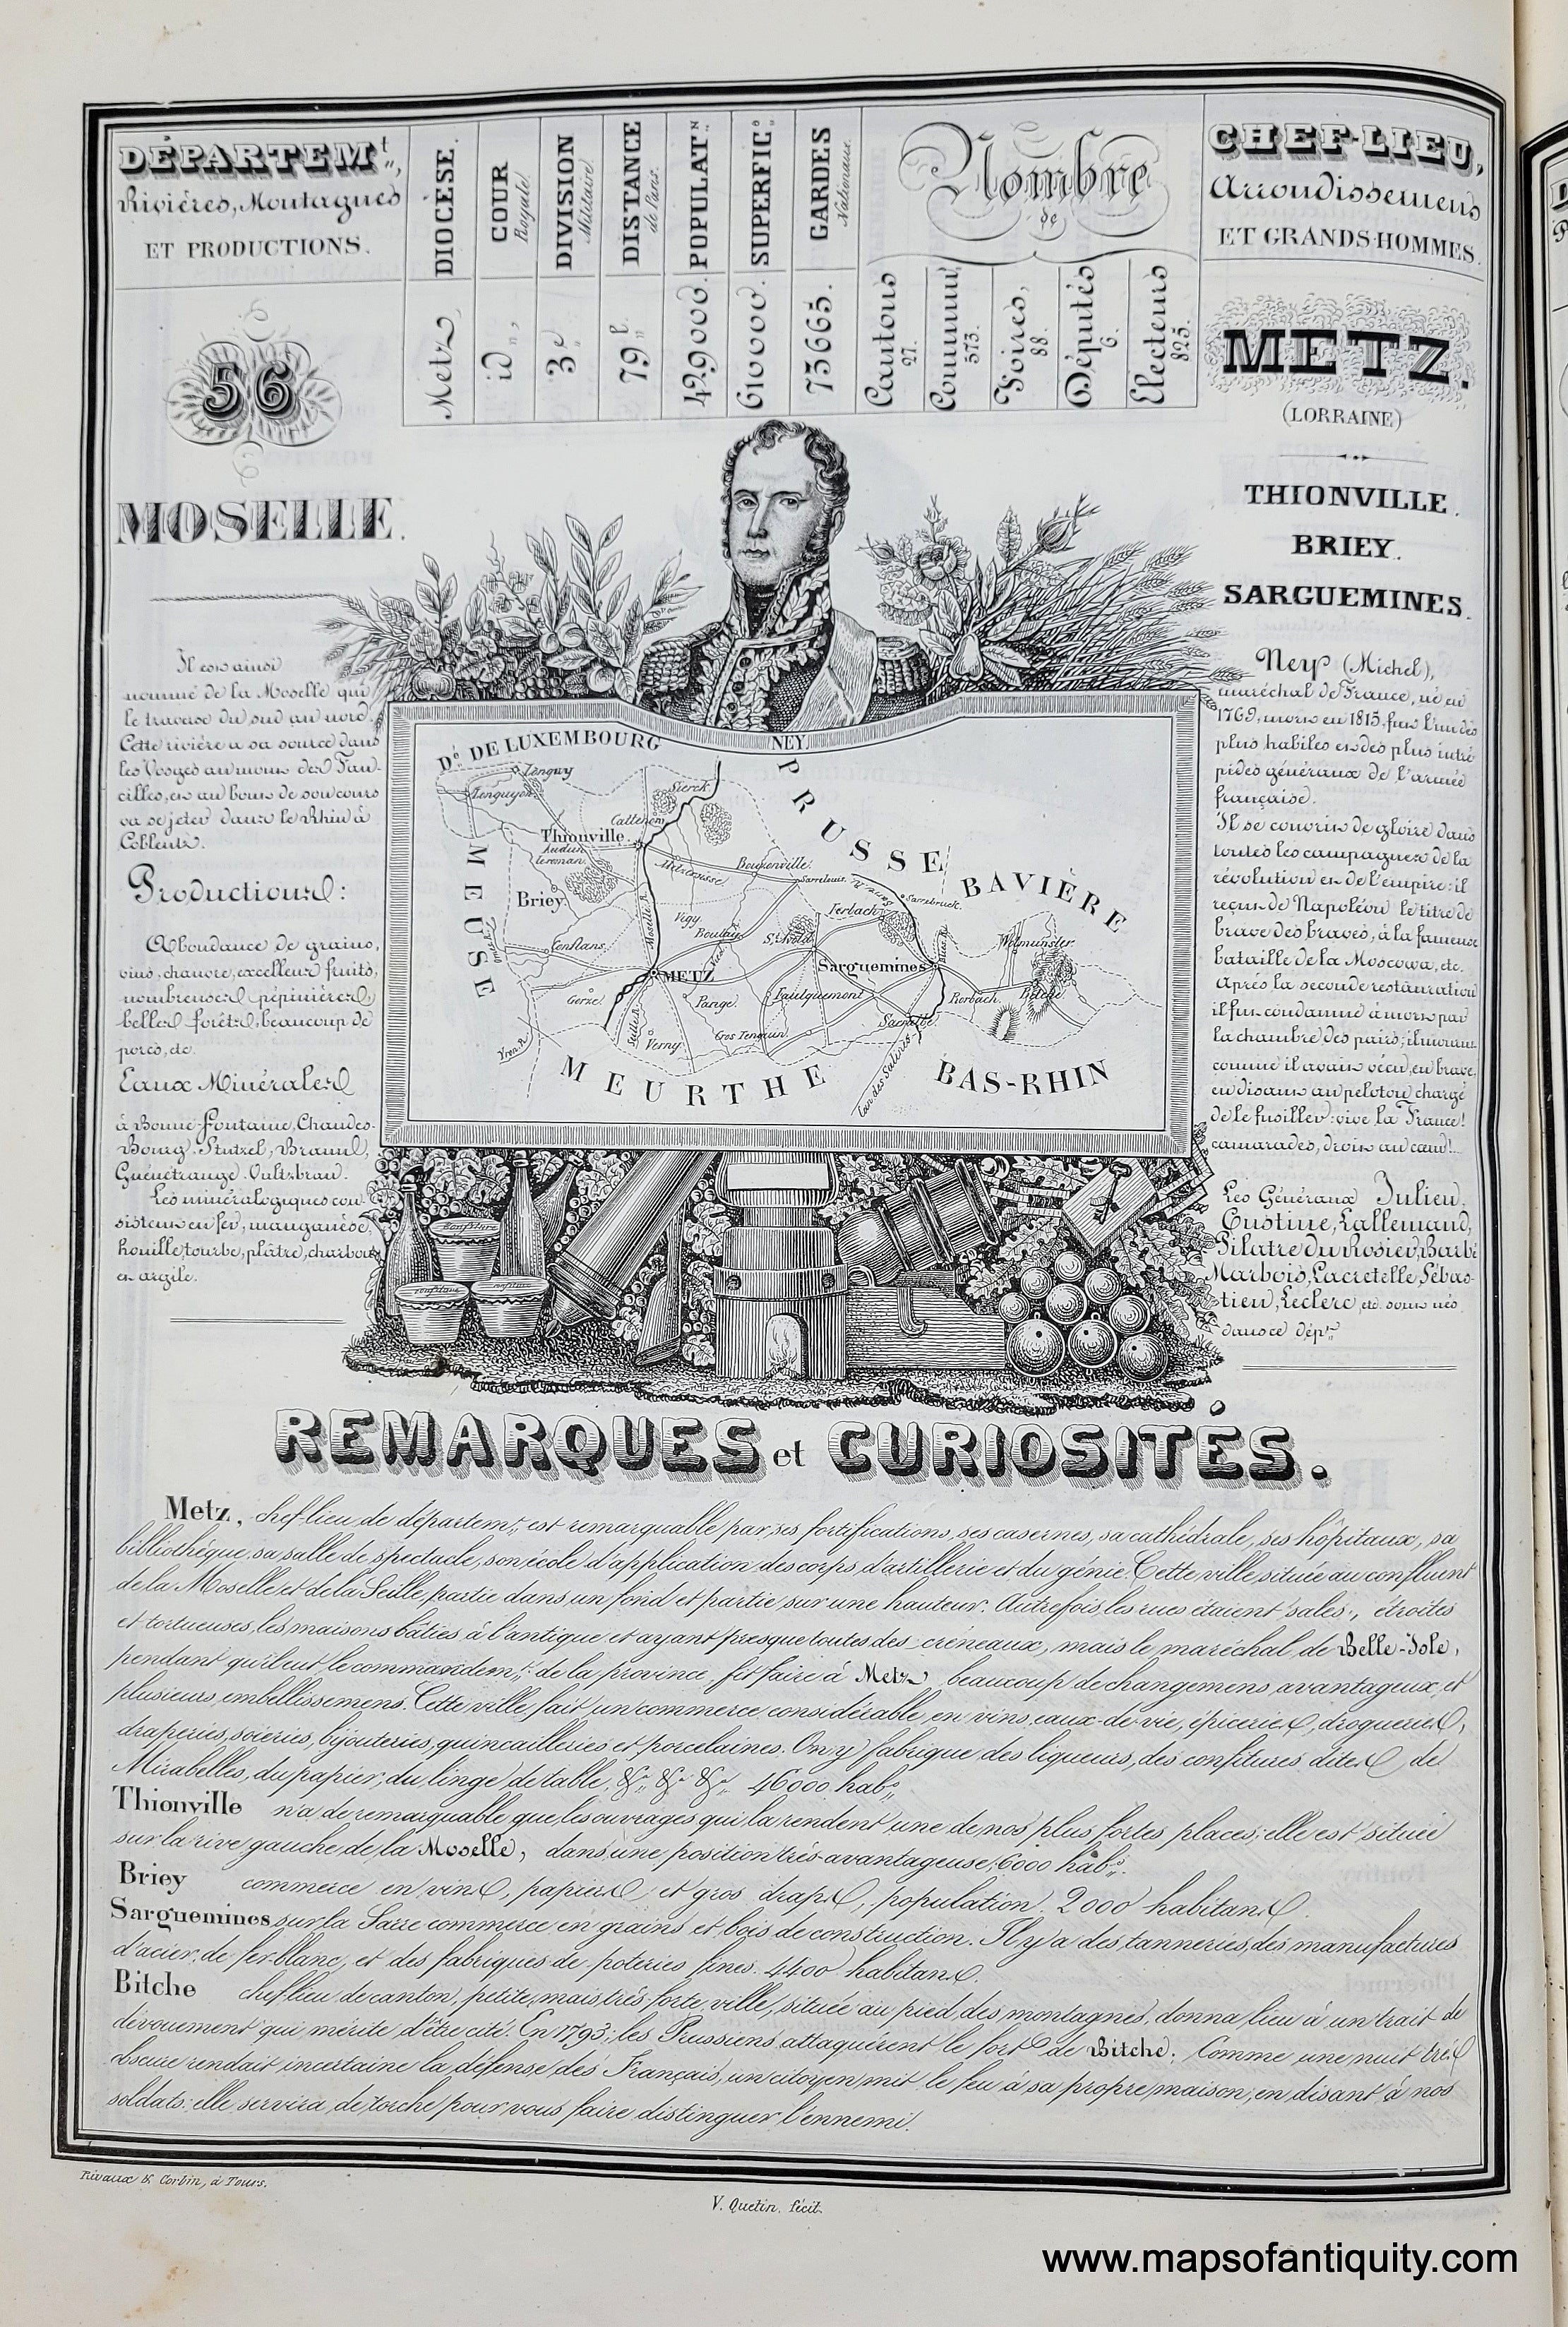 DÉPARTEMt.,
Rivières, Montagnes
ET PRODUCTIONS.
DIOCESE.
COUR
Royale
DIVISION
Militaire
DISTANCE
de Paris.
POPULATn.
SUPERFICe.
GARDES
Nationaux.
Nombre
de
CHEF-LIEU,
Arrondissemens
ET GRANDS-HOMMES.
Metz,
id.,
3e
79 l.
429000.
610000.
73665.
Cantons
27.
Commun.
573.
Foires,
88.
Députés
6.
Electeurs
825.
56
MOSELLE.
METZ.
(LORRAINE)
THIONVILLE.
BRIEY.
SARGUEMINES.
Il est ainsi
nommé de la Moselle qui
le traverse du sud au nord.
Cette rivière a sa source dans
les Vosges au mont des Fau-
cilles, et au bout de son cours
va se jeter dans le Rhin à
Coblentz.
Productions:
Abondance de grains,
vins, chanvre, excellens fruits,
nombreuses pépinières,
belles forêts, beaucoup de
porcs, etc.
Eaux Minérales
à Bonne-Fontaine, Chaudes-
Bourg, Stutzel, Braunl,
Guénétrange, Valtzbrau.
Les minéralogiques con-
sistent en fer, manganèse,
houille, tourbe, plâtre, charbon
et argile.
NEY
Dé DE LUXEMBOURG
PRUSSE
BAVIÈRE
MEUSE
MEURTHE
BAS-RHIN
Longwy
Longuyon
Sierck
Cattenom
Thionville
Audun
leroman.
Metzervisse
Bouzonville
Sarrelouis.
Sarrebruck.
Briey
Moselle R.
Vigy
Boulay
St. Avold
Forbach
Conflans
METZ
Sarguemines
Wolmunster
Gorze
Pange
Faulquemont
Rorbach
Bitche
Seille R.
Verny
Gros Tenquin
Sarralbe
Can. des Salines
Ney (Michel),
maréchal de France, né en
1769, mort en 1815, fut l'un des
plus habiles et des plus intré-
pides généraux de l'armée
française.
Il se couvrit de gloire dans
toutes les campagnes de la
révolution et de l'empire: il
reçut de Napoléon le titre de
brave des braves, à la fameuse
bataille de la Moscowa, etc.
Après la seconde restauration
il fut condamné à mort par
la chambre des pairs; il mourut
comme il avait vécu, en brave,
en disant au peloton chargé
de le fusiller: vive la France!
camarades, droit au cœur!..
Les Généraux Julien,
Custine, Lallemand,
Pilatre du Rosier, Barbé
Marbois, Lacretelle, Sébas-
tien, Leclerc, etc. sont nés
dans ce dépt.
Confiture
Confiture
Confiture
REMARQUES et CURIOSITÉS.
Metz, chef-lieu de départemt., est remarquable par ses fortifications, ses casernes, sa cathédrale, ses hôpitaux, sa
bibliothèque, sa salle de spectacle, son école d'application des corps d'artillerie et du génie. Cette ville, située au confluent
de la Moselle et de la Seille, partie dans un fond et partie sur une hauteur. Autrefois, les rues étaient sales, étroites
et tortueuses, les maisons bâties à l'antique et ayant presque toutes des créneaux, mais le maréchal de Belle-Isle,
pendant qu'il eut le commandemt. de la province, fit faire à Metz beaucoup de changemens avantageux, et
plusieurs embellissemens. Cette ville fait un commerce considérable, en vins, eaux-de-vie, épiceries, drogueries,
draperies, soieries, bijouteries, quincailleries et porcelaines. On y fabrique des liqueurs, des confitures dites de
Mirabelles, du papier, du linge de table, &a. &a. &a. 46000 habs.
Thionville n'a de remarquable que les ouvrages qui la rendent une de nos plus fortes places; elle est située
sur la rive gauche de la Moselle, dans une position très-avantageuse, 6000 habs.
Briey commerce en vins, papiers, et gros draps; population. 2000 habitans.
Sarguemines sur la Sarre commerce en grains et bois de construction. Il y a des tanneries, des manufactures
d'acier, de fer-blanc, et des fabriques de poteries fines. 4400 habitans.
Bitche chef-lieu de canton, petite, mais très-forte ville, située au pied des montagnes, donna lieu à un trait de
dévouement qui mérite d'être cité. En 1793, les Prussiens attaquèrent le fort de Bitche; Comme une nuit très
obscure rendait incertaine la défense des Français, un citoyen mit le feu à sa propre maison, en disant à nos
soldats: elle servira de torche pour vous faire distinguer l'ennemi.
Rivaux & Corbin, à Tours.
V. Quetin, fécit.
www.mapsofantiquity.com